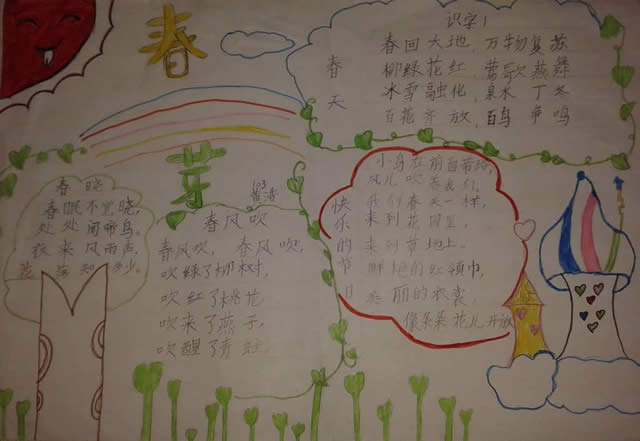 春
芽
春晓
春眠不觉晓，
处处闻啼鸟。
夜来风雨声，
花落知多少。
103
春风吹
春风吹，春风吹，
吹绿了柳树，
吹红了桃花
吹来了燕子，
吹醒了青蛙
春天
识字1
春回大地，万物复苏
柳绿花红，莺歌燕舞
冰雪融化，泉水丁冬
百花齐放，百鸟争鸣
快乐的节日
小鸟在前面带路，
风儿吹着我们，
我们像春天一样，
来到花园里，
来到草地上。
鲜艳的红领巾，
美丽的衣裳，
像朵朵花儿开放